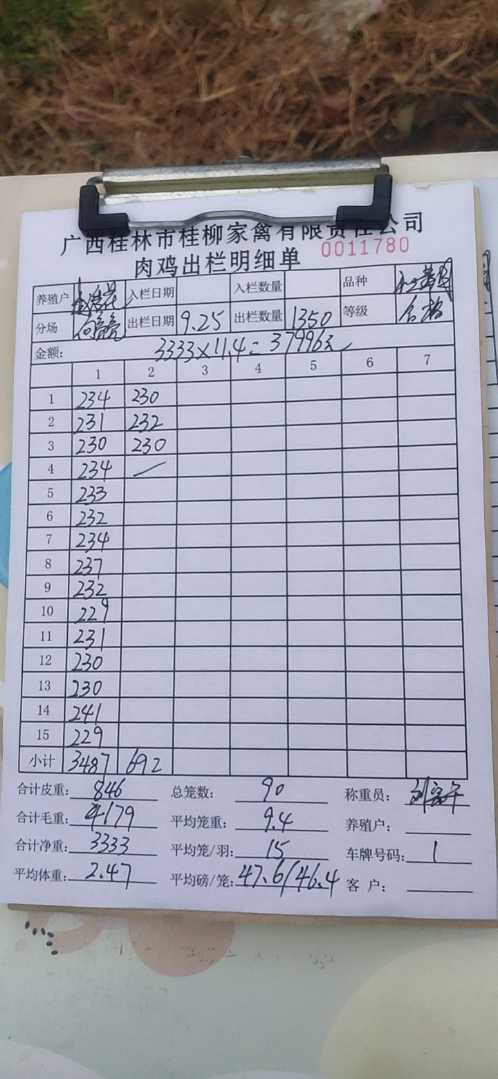 广西桂林市桂柳家禽有限责任公司
肉鸡出栏明细单 0011780
养殖户 入栏日期 入栏数量 品种
分场 出栏日期 9.25 出栏数量 1350 等级 合格
金额: 3333×11.4=37996元
1 2 3 4 5 6 7
1 234 230
2 231 232
3 230 230
4 234
5 233
6 232
7 234
8 237
9 232
10 229
11 231
12 230
13 230
14 241
15 229
小计 3487 692
合计皮重: 846 总笼数: 90 称重员:
合计毛重: 4179 平均笼重: 9.4 养殖户:
合计净重: 3333 平均笼/羽: 15 车牌号码: 1
平均体重: 2.47 平均磅/笼: 47.6/46.4 客户: